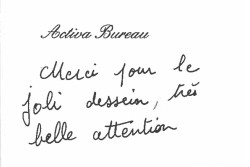 Activa Bureau
Merci pour le
joli dessein, très
belle attention